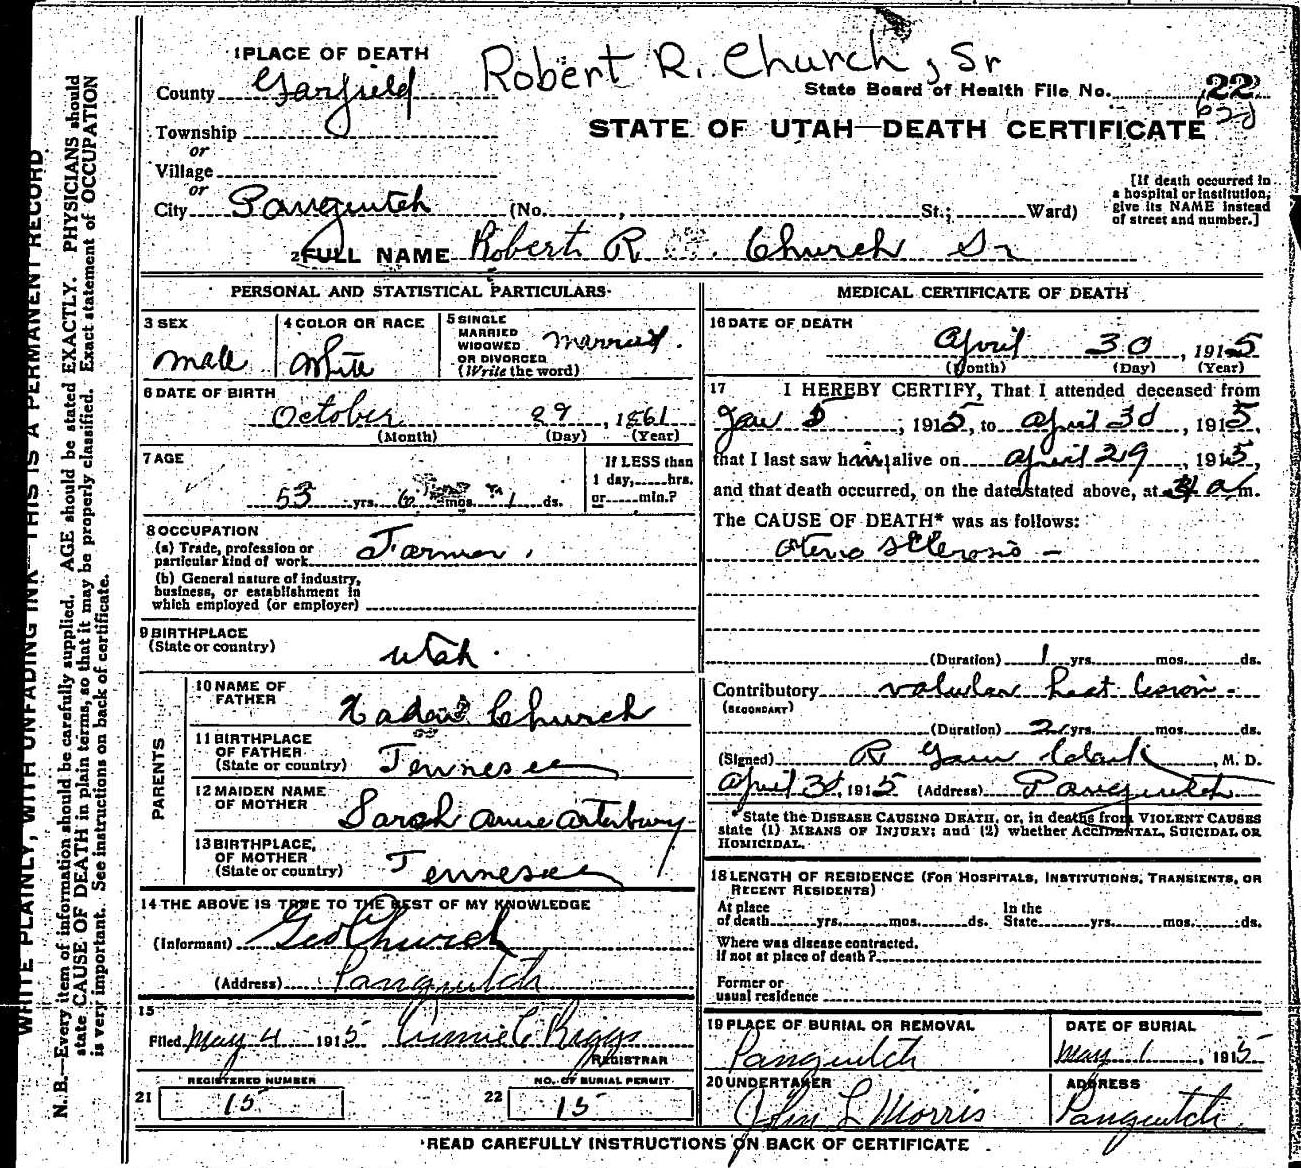 1 PLACE OF DEATH
Robert R. Church, Sr
County Garfield
State Board of Health File No. 22
Township
STATE OF UTAH—DEATH CERTIFICATE
or
Village
or
City Panguitch (No. , St.; Ward)
[If death occurred in a hospital or institution, give its NAME instead of street and number.]
2 FULL NAME Robert R Church Sr
PERSONAL AND STATISTICAL PARTICULARS
3 SEX
male
4 COLOR OR RACE
White
5 SINGLE MARRIED WIDOWED OR DIVORCED (Write the word)
married.
6 DATE OF BIRTH
October 29, 1861
(Month) (Day) (Year)
7 AGE
53 yrs. 6 mos. 1 ds.
If LESS than 1 day, hrs. or min.?
8 OCCUPATION
(a) Trade, profession or particular kind of work Farmer.
(b) General nature of industry, business, or establishment in which employed (or employer)
9 BIRTHPLACE
(State or country)
Utah.
PARENTS
10 NAME OF FATHER
Church
11 BIRTHPLACE OF FATHER (State or country)
Tennesee
12 MAIDEN NAME OF MOTHER
Sarah Anne Arterbury
13 BIRTHPLACE, OF MOTHER (State or country)
Tennesee
14 THE ABOVE IS TRUE TO THE BEST OF MY KNOWLEDGE
(Informant) Geo Church
(Address) Panguitch
15
Filed May 4 1915 C Riggs
REGISTRAR
REGISTERED NUMBER
21 15
NO. OF BURIAL PERMIT
22 15
MEDICAL CERTIFICATE OF DEATH
16 DATE OF DEATH
April 30, 1915
(Month) (Day) (Year)
17 I HEREBY CERTIFY, That I attended deceased from
Jan 5, 1915, to April 30, 1915,
that I last saw him alive on April 29, 1915,
and that death occurred, on the date stated above, at a m.
The CAUSE OF DEATH* was as follows:
Sclerosis —
(Duration) 1 yrs. mos. ds.
Contributory
(SECONDARY)
(Duration) 2 yrs. mos. ds.
(Signed) R Clark, M. D.
April 30, 1915 (Address) Panguitch
*State the DISEASE CAUSING DEATH, or, in deaths from VIOLENT CAUSES
state (1) MEANS OF INJURY; and (2) whether ACCIDENTAL, SUICIDAL OR
HOMICIDAL.
18 LENGTH OF RESIDENCE (FOR HOSPITALS, INSTITUTIONS, TRANSIENTS, OR
RECENT RESIDENTS)
At place of death yrs. mos. ds. In the State yrs. mos. ds.
Where was disease contracted,
If not at place of death?
Former or
usual residence
19 PLACE OF BURIAL OR REMOVAL
Panguitch
DATE OF BURIAL
May 1, 1915
20 UNDERTAKER
John L Morris
ADDRESS
Panguitch
READ CAREFULLY INSTRUCTIONS ON BACK OF CERTIFICATE
WRITE PLAINLY, WITH UNFADING INK—THIS IS A PERMANENT RECORD
N. B.—Every item of information should be carefully supplied. AGE should be stated EXACTLY. PHYSICIANS should
state CAUSE OF DEATH in plain terms, so that it may be properly classified. Exact statement of OCCUPATION
is very important. See instructions on back of certificate.